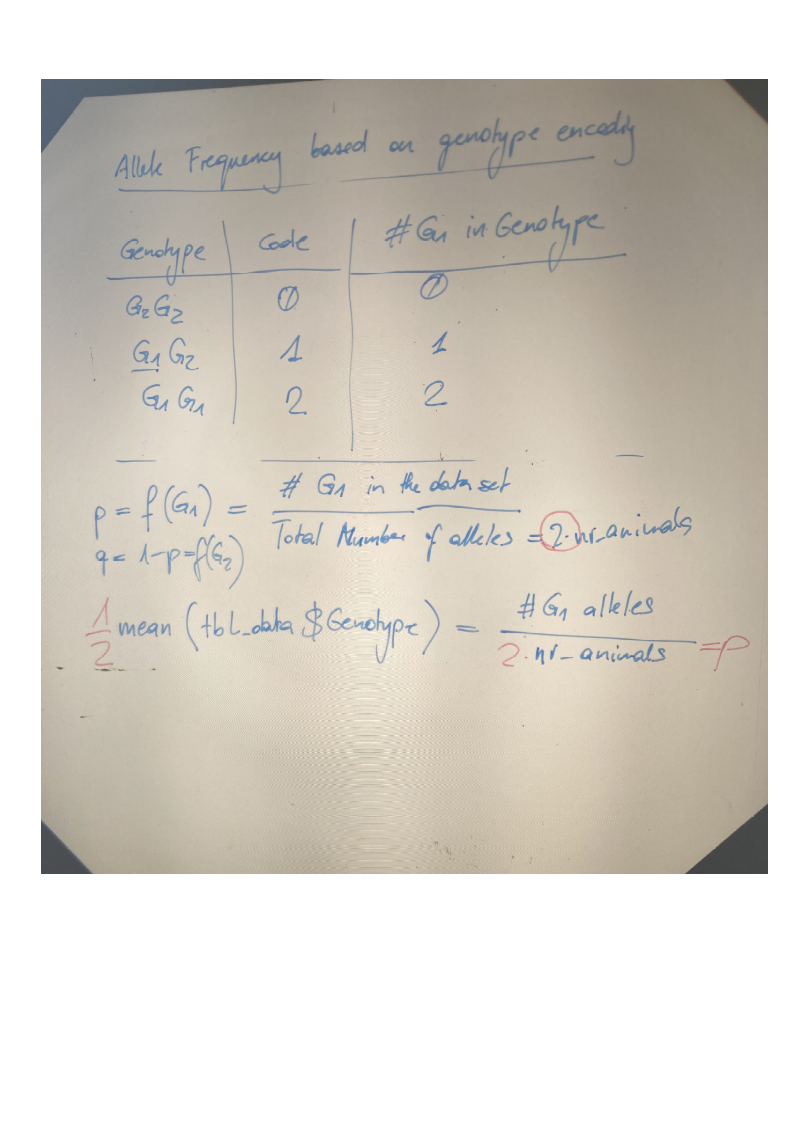 Allele Frequency based on genotype encodig
Genotype | Code | # G1 in Genotype
G2G2 | 0 | 0
G1G2 | 1 | 1
G1G1 | 2 | 2
p = f(G1) = # G1 in the data set / Total Number of alleles = 2·nr_animals
q = 1-p = f(G2)
1/2 mean (tbl_data $ Genotype) = # G1 alleles / 2·nr_animals = p